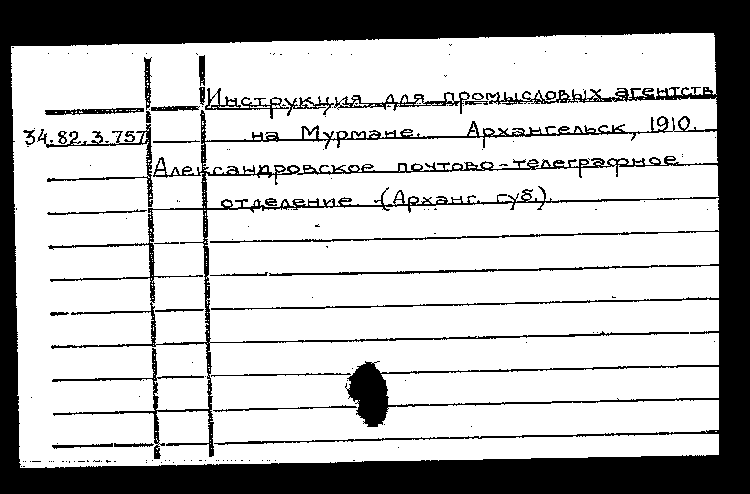 Инструкция для промысловых агентств
34.82.3.757 на Мурмане. Архангельск, 1910.
Александровское почтово-телеграфное
отделение (Арханг. губ.).